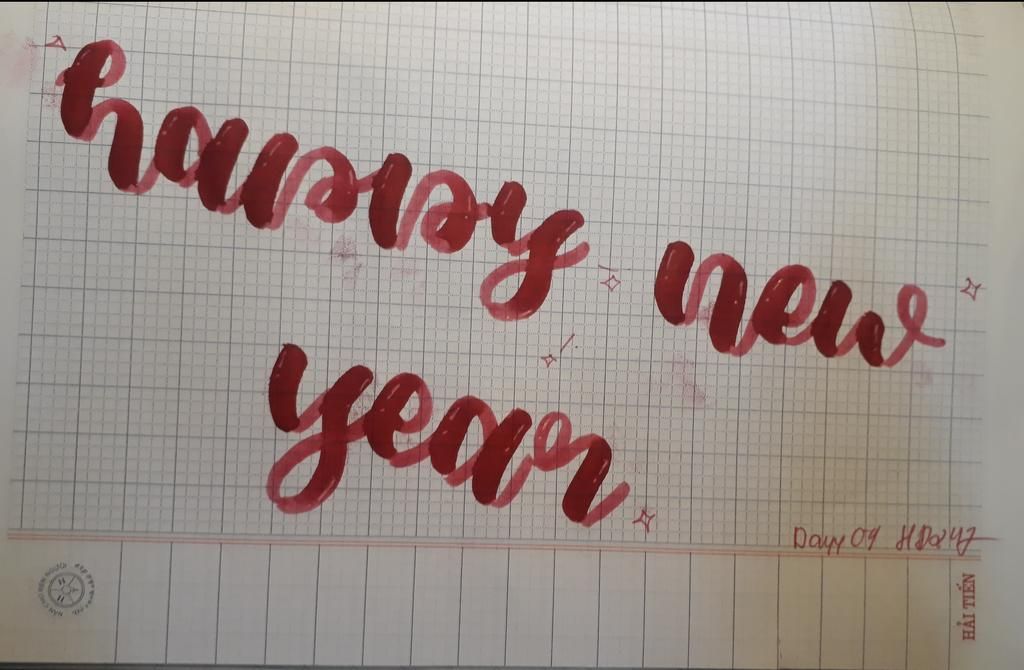 happy new
year
Day 09
HẢI TIẾN